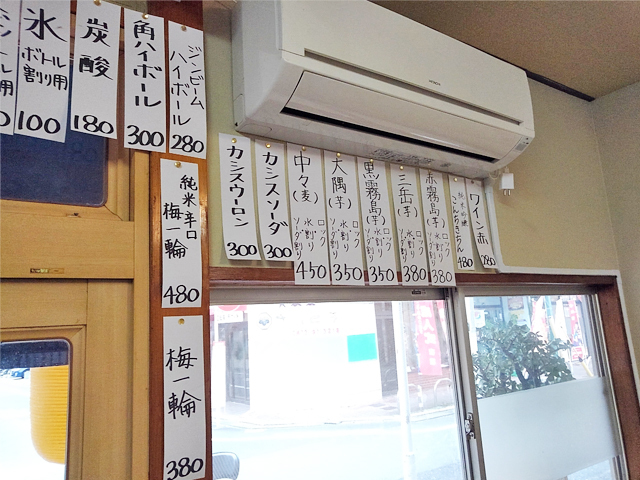 氷
ボトル
割り用
100
炭酸
180
角ハイボール
300
ジンビーム
ハイボール
280
純米辛口
梅一輪
480
梅一輪
380
HITACHI
カシスウーロン
300
カシスソーダ
300
中々(麦)
ロック
水割り
ソダ割り
450
大隅(芋)
ロック
水割り
ソダ割り
350
黒霧島(芋)
ロック
水割り
ソダ割り
350
三岳(芋)
ロック
水割り
ソダ割り
380
赤霧島(芋)
ロック
水割り
ソダ割り
380
480
ワイン赤